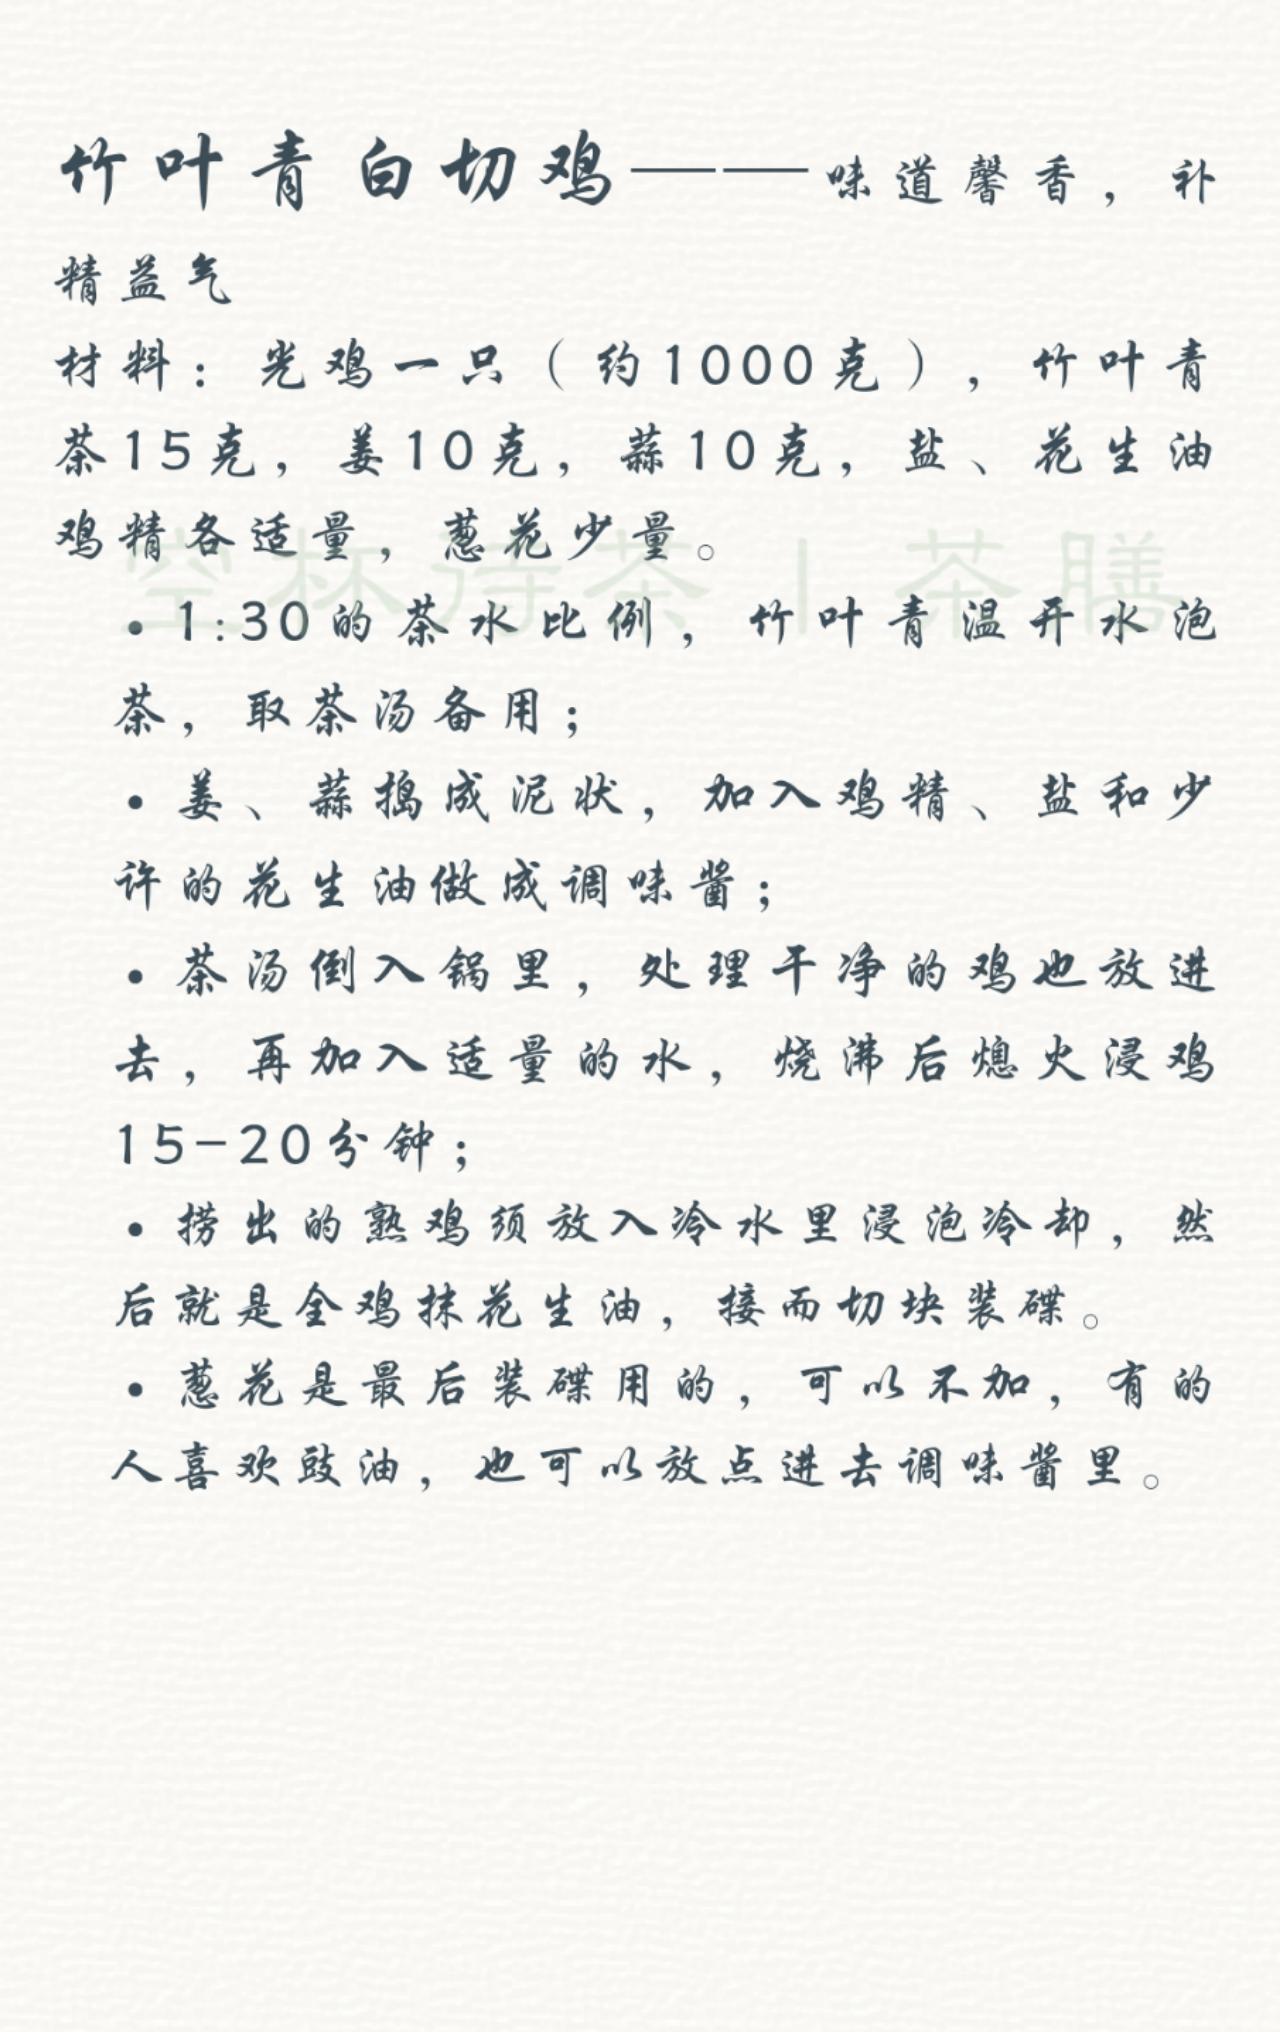 竹叶青白切鸡——味道馨香，补
精益气
材料：光鸡一只（约1000克），竹叶青
茶15克，姜10克，蒜10克，盐、花生油
鸡精各适量，葱花少量。
空杯待茶 | 茶膳
•1:30的茶水比例，竹叶青温开水泡
茶，取茶汤备用；
•姜、蒜捣成泥状，加入鸡精、盐和少
许的花生油做成调味酱；
•茶汤倒入锅里，处理干净的鸡也放进
去，再加入适量的水，烧沸后熄火浸鸡
15-20分钟；
•捞出的熟鸡须放入冷水里浸泡冷却，然
后就是全鸡抹花生油，接而切块装碟。
•葱花是最后装碟用的，可以不加，有的
人喜欢豉油，也可以放点进去调味酱里。